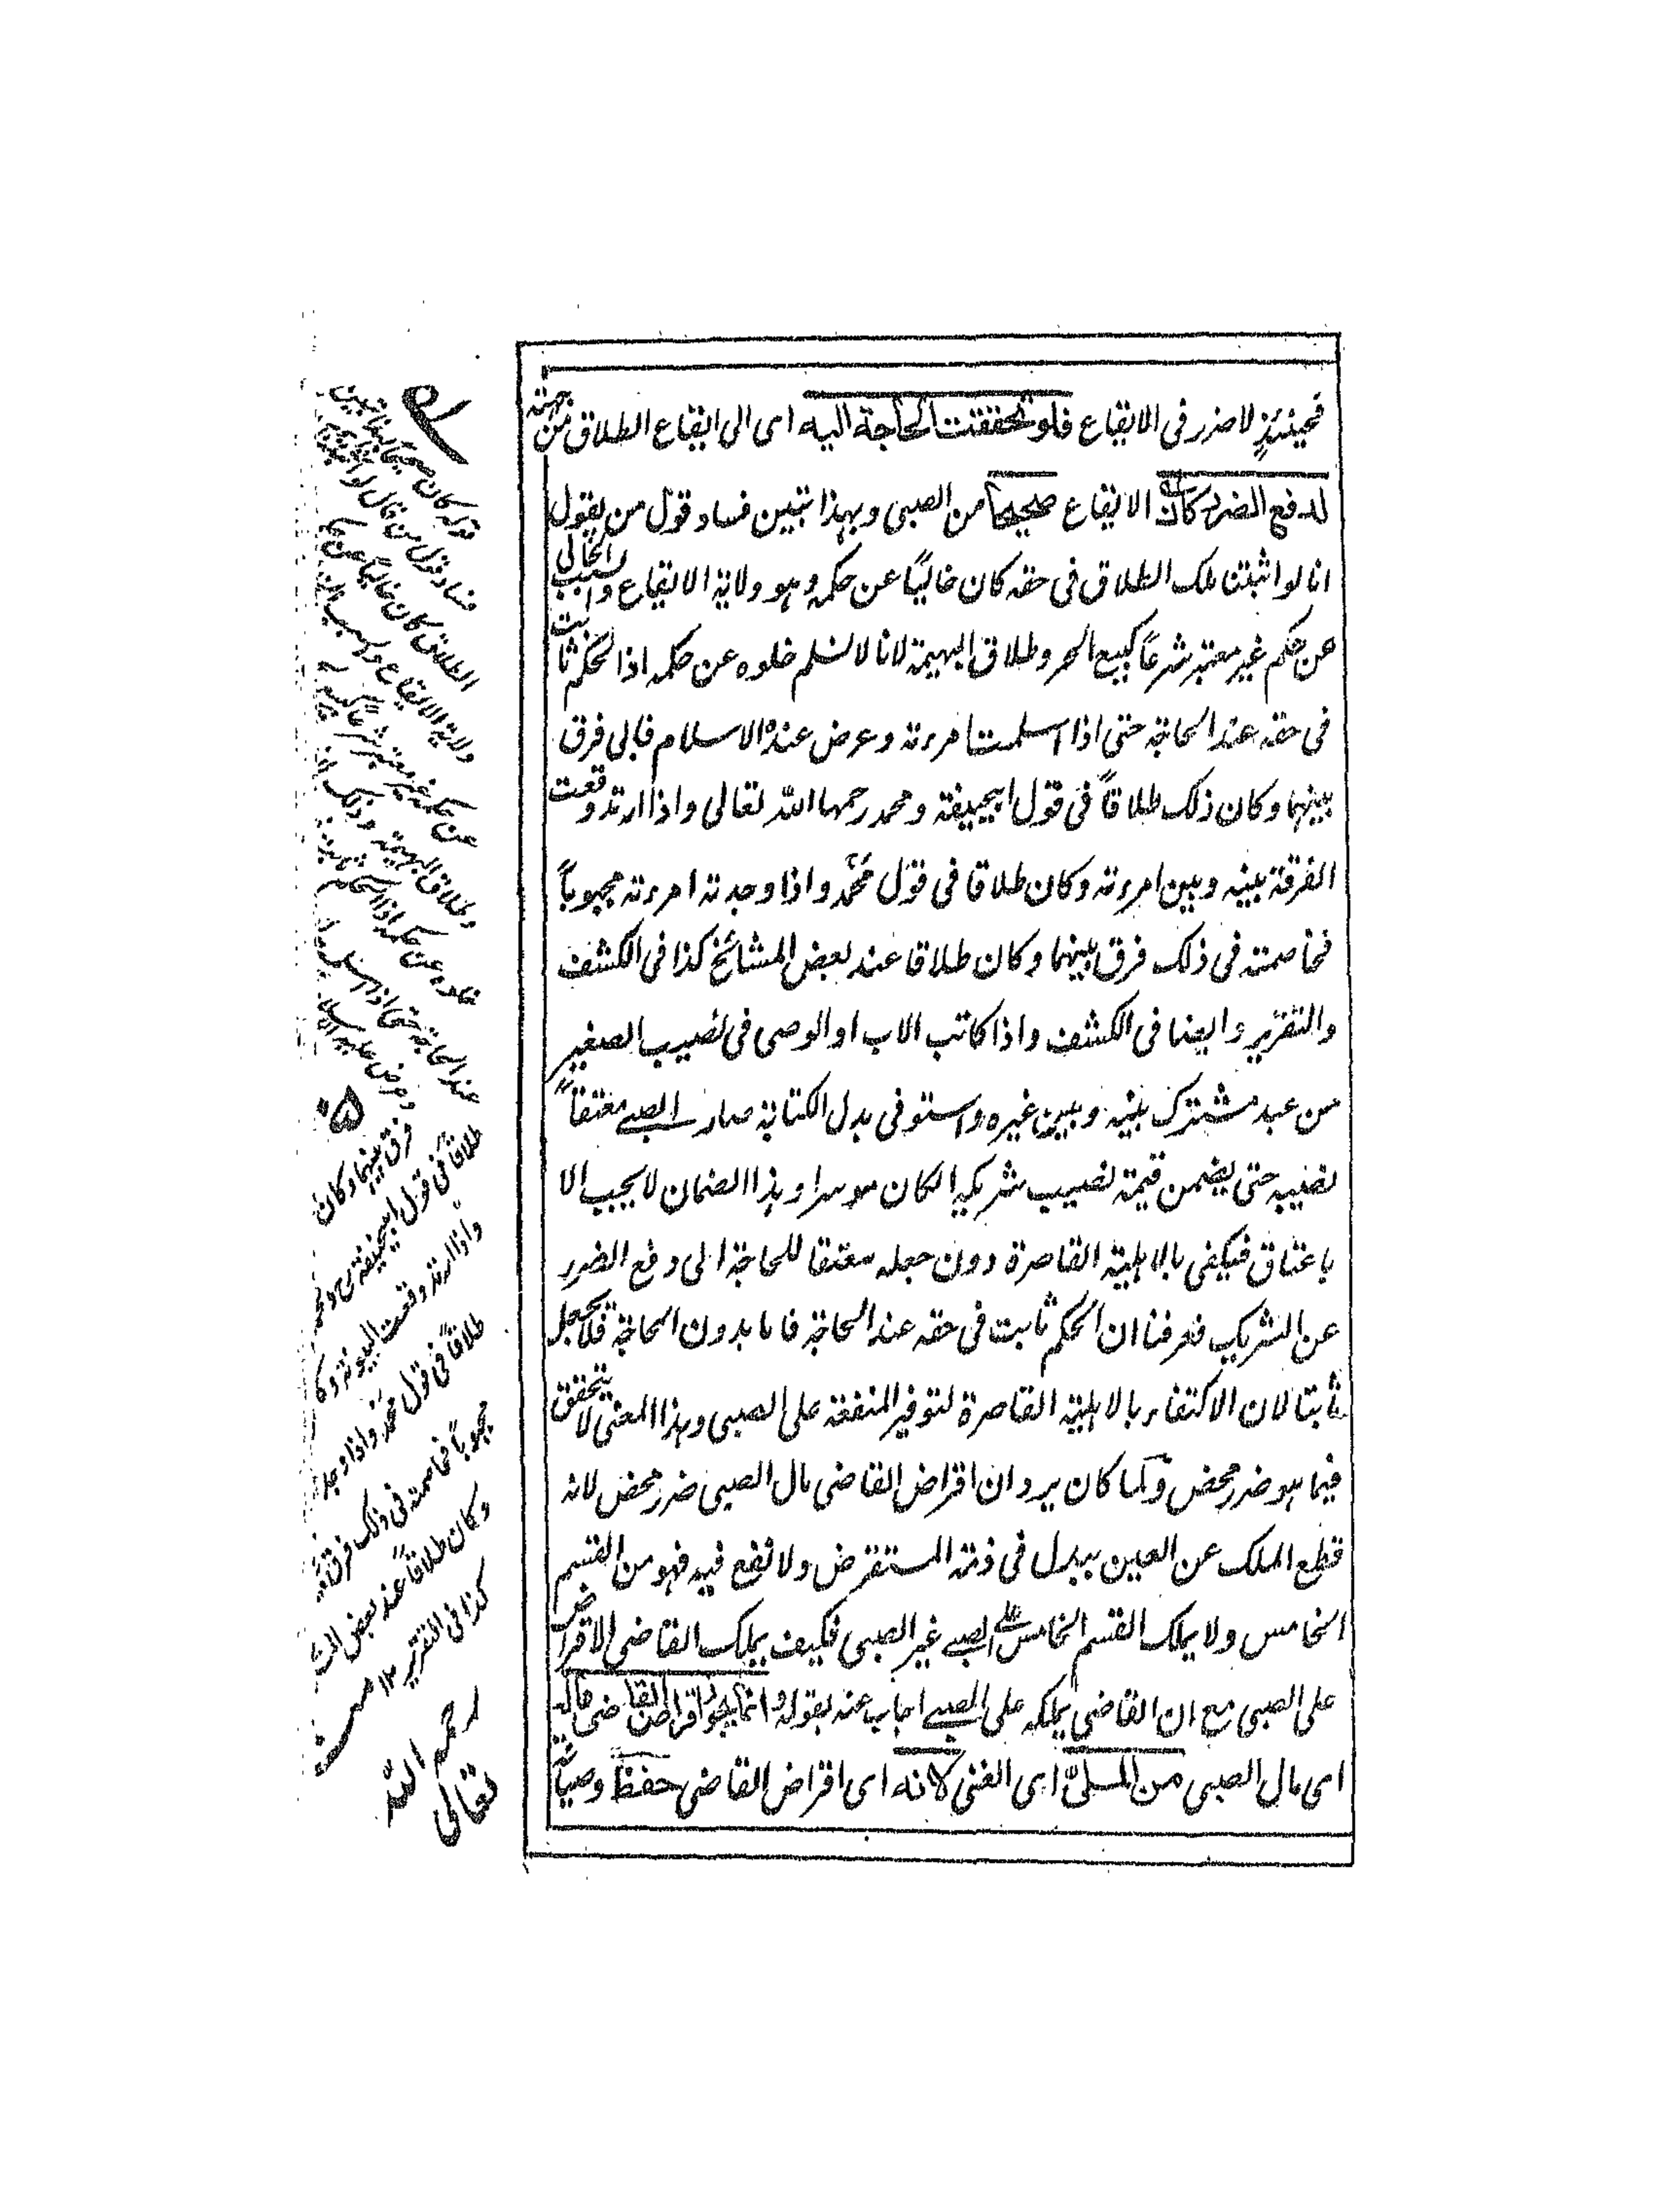 فحينئذٍ لا ضرر فى الايقاع فلو تحققت الحاجة اليه اى الى ايقاع الطلاق من جهته
لدفع الضرر كان الايقاع صحيحا من الصبى وبهذا تبين فساد قول من يقول
انا لو اثبتنا ملك الطلاق فى حقه كان خاليًا عن حكمه وهو ولاية الايقاع والسبب الخالى
عن حكم غير معتبر شرعاً كبيع الحر وطلاق البهيمة لانا لا نسلم خلوه عن حكمه اذا الحكم ثابت
فى حقه عند الحاجة حتى اذا اسلمت امرءته وعرض عنده الاسلام فابى فرق
بينهما وكان ذلك طلاقاً فى قول ابيحنيفة ومحمد رحمهما الله تعالى واذا ارتد وقعت
الفرقة بينه وبين امرءته وكان طلاقا فى قول محمد واذا وجدته امرءته مجبوباً
فخاصمته فى ذلك فرق بينهما وكان طلاقا عند بعض المشائخ كذا فى الكشف
والتقرير وايضا فى الكشف واذا كاتب الاب او الوصى فى نصيب الصغير
من عبد مشترك بينه وبين غيره واستوفى بدل الكتابة صار الصبے معتقاً
نصيبه حتى يضمن قيمة نصيب شريكه انكان موسرا وهذا الضمان لا يجب الا
باعتاق فيكفى بالاهلية القاصرة دون جعله معتقا للحاجة الى دفع الضرر
عن الشريك فعرفنا ان الحكم ثابت فى حقه عند الحاجة فاما بدون الحاجة فلا يجعل
ثابتا لان الاكتفاء بالاهلية القاصرة لتوفير المنفعة على الصبى وهذا المعنى لا يتحقق
فيما هو ضرر محض ولما كان يرد ان اقراض القاضى مال الصبى ضرر محض لانه
قطع الملك عن العين ببدل فى ذمة المستقرض ولا نفع فيه فهو من القسم
الخامس ولا يملك القسم الخامس على الصبے غير الصبى فكيف يملك القاضى الاقراض
على الصبى مع ان القاضى يملكه على الصبے اجاب عنه بقوله وانما يجوز اقراض القاضى ماله
اى مال الصبى من الملىّ اى الغنى لانه اى اقراض القاضى حفظ وصيانة
قوله كان صحيحا
فساد قول من قال لو
الطلاق كان خالياً عن حكم
ولاية الايقاع والسبب
عن حكمه غير معتبر شرعاً كبيع
وطلاق البهيمة وذلك
خلوه عن حكمه اذا
عند الحاجة حتى اذا اسلمت
وعرض عليه الاسلام
فرق بينهما وكان
طلاقاً فى قول ابيحنيفة رح ومحمد
واذا ارتد وقعت البينونة وكا
طلاقاً فى قول محمد واذا وجدته
مجبوباً فخاصمته فى ذلك فرق
وكان طلاقاً عند بعض
كذا فى التقرير ١٢
رحمه الله
تعالى